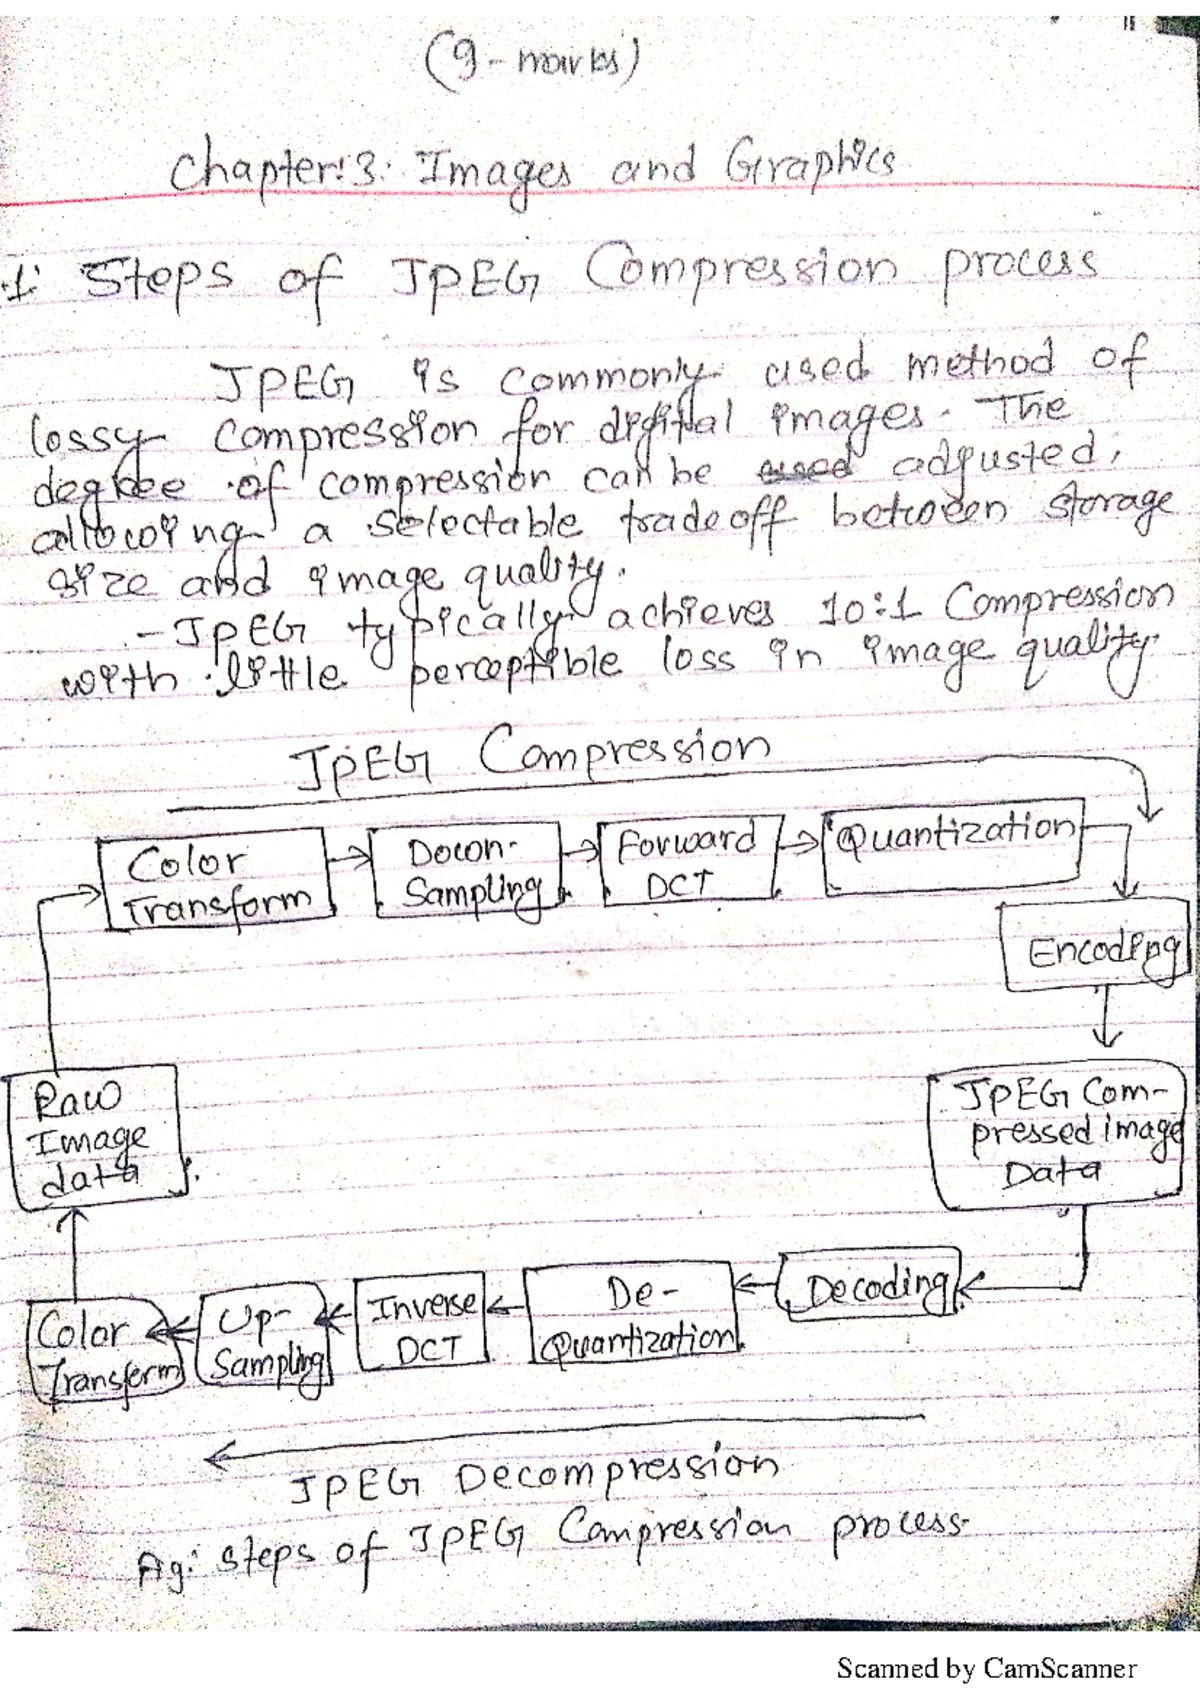 (9 - marks)
Chapter:3: Images and Graphics
1: Steps of JPEG Compression process
JPEG is commonly used method of
lossy compression for digital images. The
degree of compression can be used adjusted,
allowing a selectable tradeoff between storage
size and image quality.
- JPEG typically achieves 10:1 Compression
with little perceptible loss in image quality
JPEG Compression
Color
Transform
Down-
Sampling
Forward
DCT
Quantization
Encoding
Raw
Image
data
JPEG Com-
pressed image
Data
Color
Transform
Up-
Sampling
Inverse
DCT
De-
Quantization
Decoding
JPEG Decompression
Fig: steps of JPEG Compression process
Scanned by CamScanner